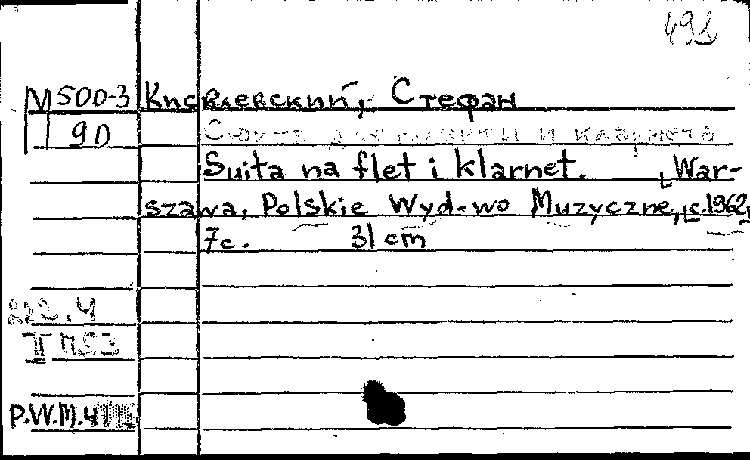 491
M 500-3 Кисялевский, Стефан
90 Сюита для флейты и кларнета
Suita na flet i klarnet. [War-
szawa, Polskie Wyd-wo Muzyczne, c.1962]
7с. 31 cm
222.4
P.W.M.4